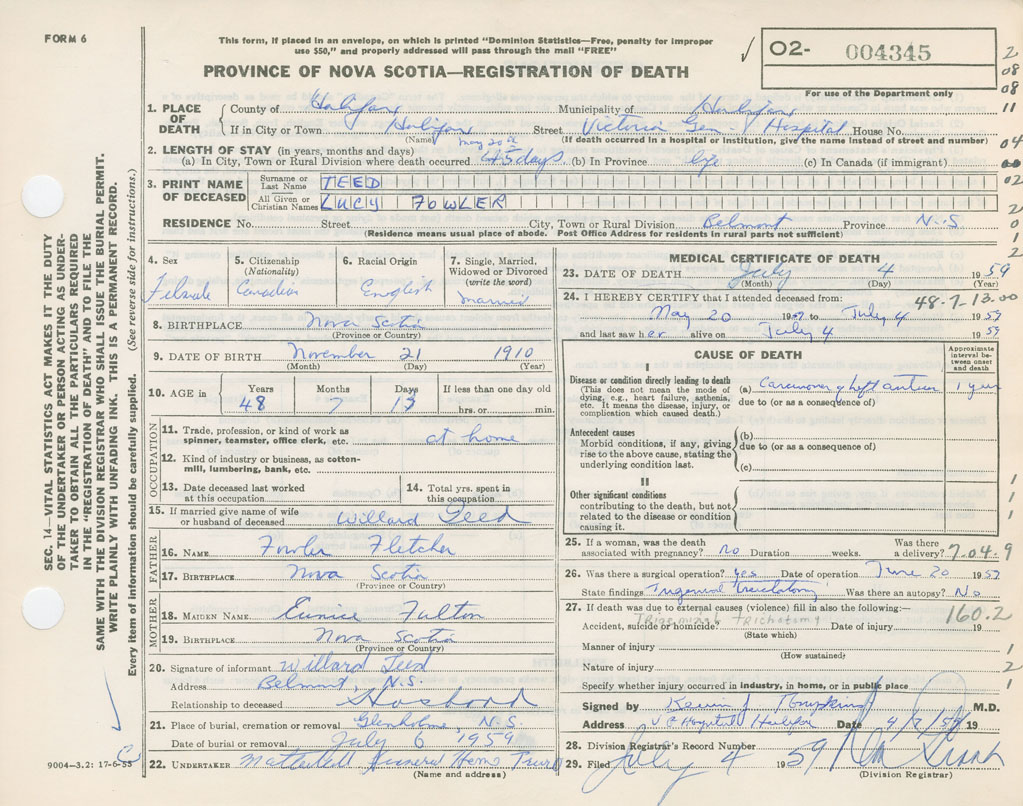 FORM 6
This form, if placed in an envelope, on which is printed "Dominion Statistics—Free, penalty for improper
use $50," and properly addressed will pass through the mail "FREE"
PROVINCE OF NOVA SCOTIA—REGISTRATION OF DEATH
O2- 004345
For use of the Department only
2
08
08
11
04
02
2
0
1
2
1. PLACE OF DEATH
County of Halifax Municipality of Halifax
If in City or Town Halifax Street Victoria Gen. Hospital House No.
(Name) (If death occurred in a hospital or institution, give the name instead of street and number)
2. LENGTH OF STAY (in years, months and days) May 20th
(a) In City, Town or Rural Division where death occurred 45 days (b) In Province life (c) In Canada (if immigrant)
3. PRINT NAME OF DECEASED
Surname or Last Name TEED
All Given or Christian Names LUCY FOWLER
RESIDENCE No. Street City, Town or Rural Division Belmont Province N.S.
(Residence means usual place of abode. Post Office Address for residents in rural parts not sufficient)
4. Sex Female
5. Citizenship (Nationality) Canadian
6. Racial Origin English
7. Single, Married, Widowed or Divorced (write the word) married
8. BIRTHPLACE Nova Scotia
(Province or Country)
9. DATE OF BIRTH November 21 1910
(Month) (Day) (Year)
10. AGE in Years 48 Months 7 Days 13 If less than one day old hrs. or min.
OCCUPATION
11. Trade, profession, or kind of work as spinner, teamster, office clerk, etc. at home
12. Kind of industry or business, as cotton-mill, lumbering, bank, etc.
13. Date deceased last worked at this occupation
14. Total yrs. spent in this occupation
15. If married give name of wife or husband of deceased Willard Teed
FATHER
16. NAME Fowler Fletcher
17. BIRTHPLACE Nova Scotia
(Province or Country)
MOTHER
18. MAIDEN NAME Eunice Fulton
19. BIRTHPLACE Nova Scotia
(Province or Country)
20. Signature of informant Willard Teed
Address Belmont, N.S.
Relationship to deceased Husband
21. Place of burial, cremation or removal Glenholme N.S.
Date of burial or removal July 6 1959
22. UNDERTAKER Funeral Home Truro
(Name and address)
MEDICAL CERTIFICATE OF DEATH
23. DATE OF DEATH July 4 1959
(Month) (Day) (Year)
48-7-13.00
24. I HEREBY CERTIFY that I attended deceased from:
May 20 1959 to July 4 1959
and last saw her alive on July 4 1959
CAUSE OF DEATH
Approximate interval between onset and death
I
Disease or condition directly leading to death
(This does not mean the mode of dying, e.g., heart failure, asthenia, etc. It means the disease, injury, or complication which caused death.)
(a) Carcinoma of left antrum 1 year
due to (or as a consequence of)
Antecedent causes
Morbid conditions, if any, giving rise to the above cause, stating the underlying condition last.
(b)
due to (or as a consequence of)
(c)
II
Other significant conditions
contributing to the death, but not related to the disease or condition causing it.
1
1
1
25. If a woman, was the death associated with pregnancy? no Duration weeks. Was there a delivery? 7.04.9
26. Was there a surgical operation? yes Date of operation June 20 1959
State findings Was there an autopsy? No
27. If death was due to external causes (violence) fill in also the following:— 160.2
Accident, suicide or homicide? Date of injury 19
(State which)
Manner of injury 1
(How sustained)
Nature of injury 2
Specify whether injury occurred in industry, in home, or in public place 1
Signed by Kevin J Tompkins M.D.
Address V G Hospital Halifax Date 4/7/59 19
28. Division Registrar's Record Number
29. Filed July 4 1959
(Division Registrar)
SEC. 14—VITAL STATISTICS ACT MAKES IT THE DUTY
OF THE UNDERTAKER OR PERSON ACTING AS UNDER-
TAKER TO OBTAIN ALL THE PARTICULARS REQUIRED
IN THE "REGISTRATION OF DEATH" AND TO FILE THE
SAME WITH THE DIVISION REGISTRAR WHO SHALL ISSUE THE BURIAL PERMIT.
WRITE PLAINLY WITH UNFADING INK. THIS IS A PERMANENT RECORD.
Every item of information should be carefully supplied. (See reverse side for instructions.)
9004—3.2: 17-6-55